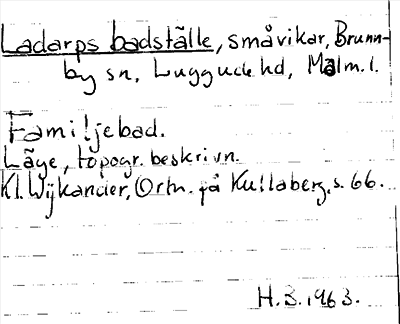 Ladarps badställe, småvikar, Brunn-
by sn, Luggude hd, Malm. l.
Familjebad.
Läge, topogr. beskrivn.
Kl. Wijkander, Ortn. på Kullaberg, s. 66.
H.B. 1963.